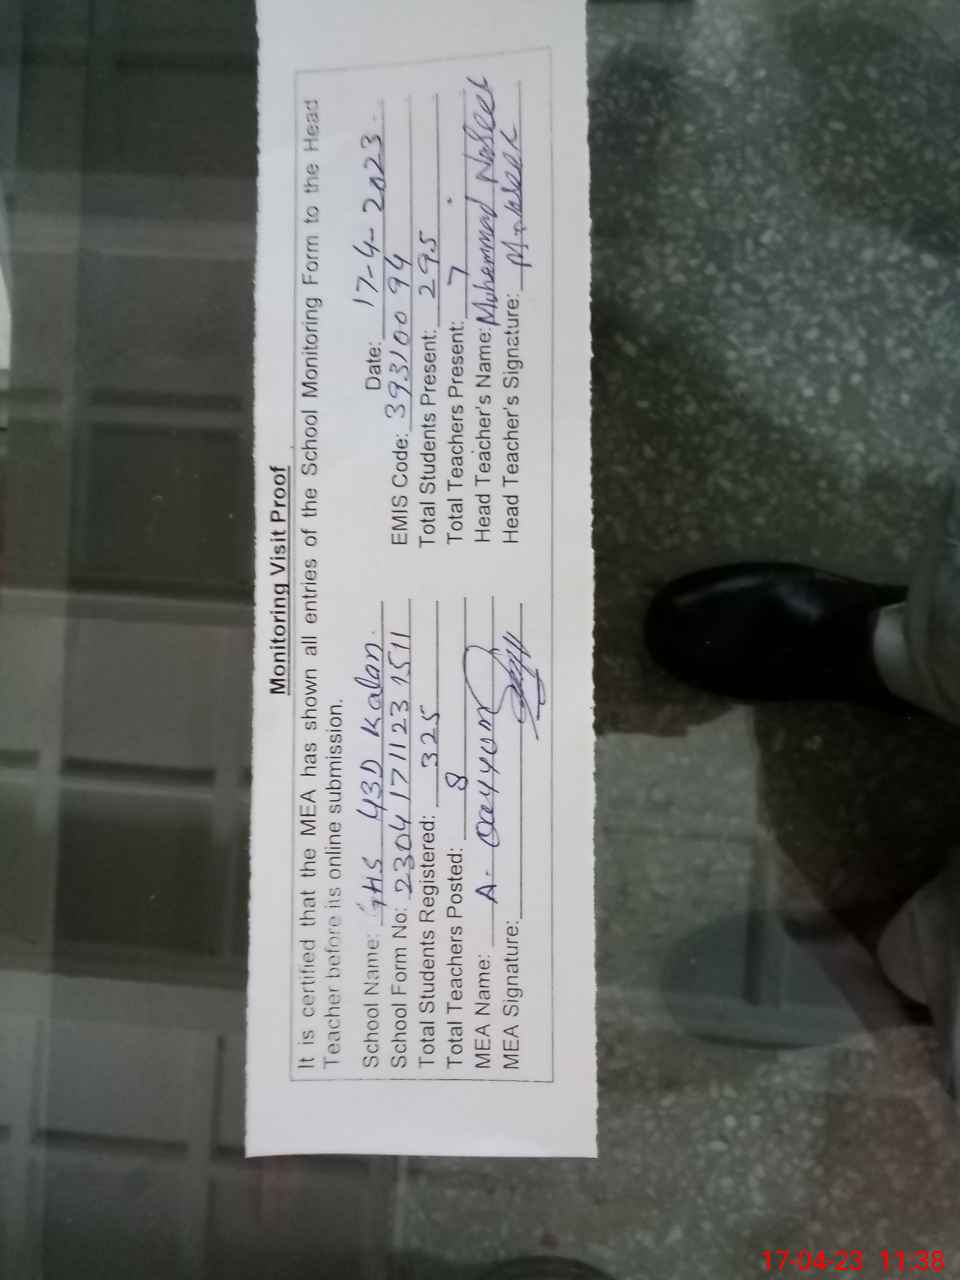 Monitoring Visit Proof
It is certified that the MEA has shown all entries of the School Monitoring Form to the Head
Teacher before its online submission.
School Name: GHS 43D Kalan. Date: 17-4-2023.
School Form No: 23041711231511 EMIS Code: 39310094
Total Students Registered: 325 Total Students Present: 295
Total Teachers Posted: 8 Total Teachers Present: 7
MEA Name: A. Qayyum Head Teacher's Name: Muhammad Naseer
MEA Signature: Head Teacher's Signature:
17-04-23 11:38